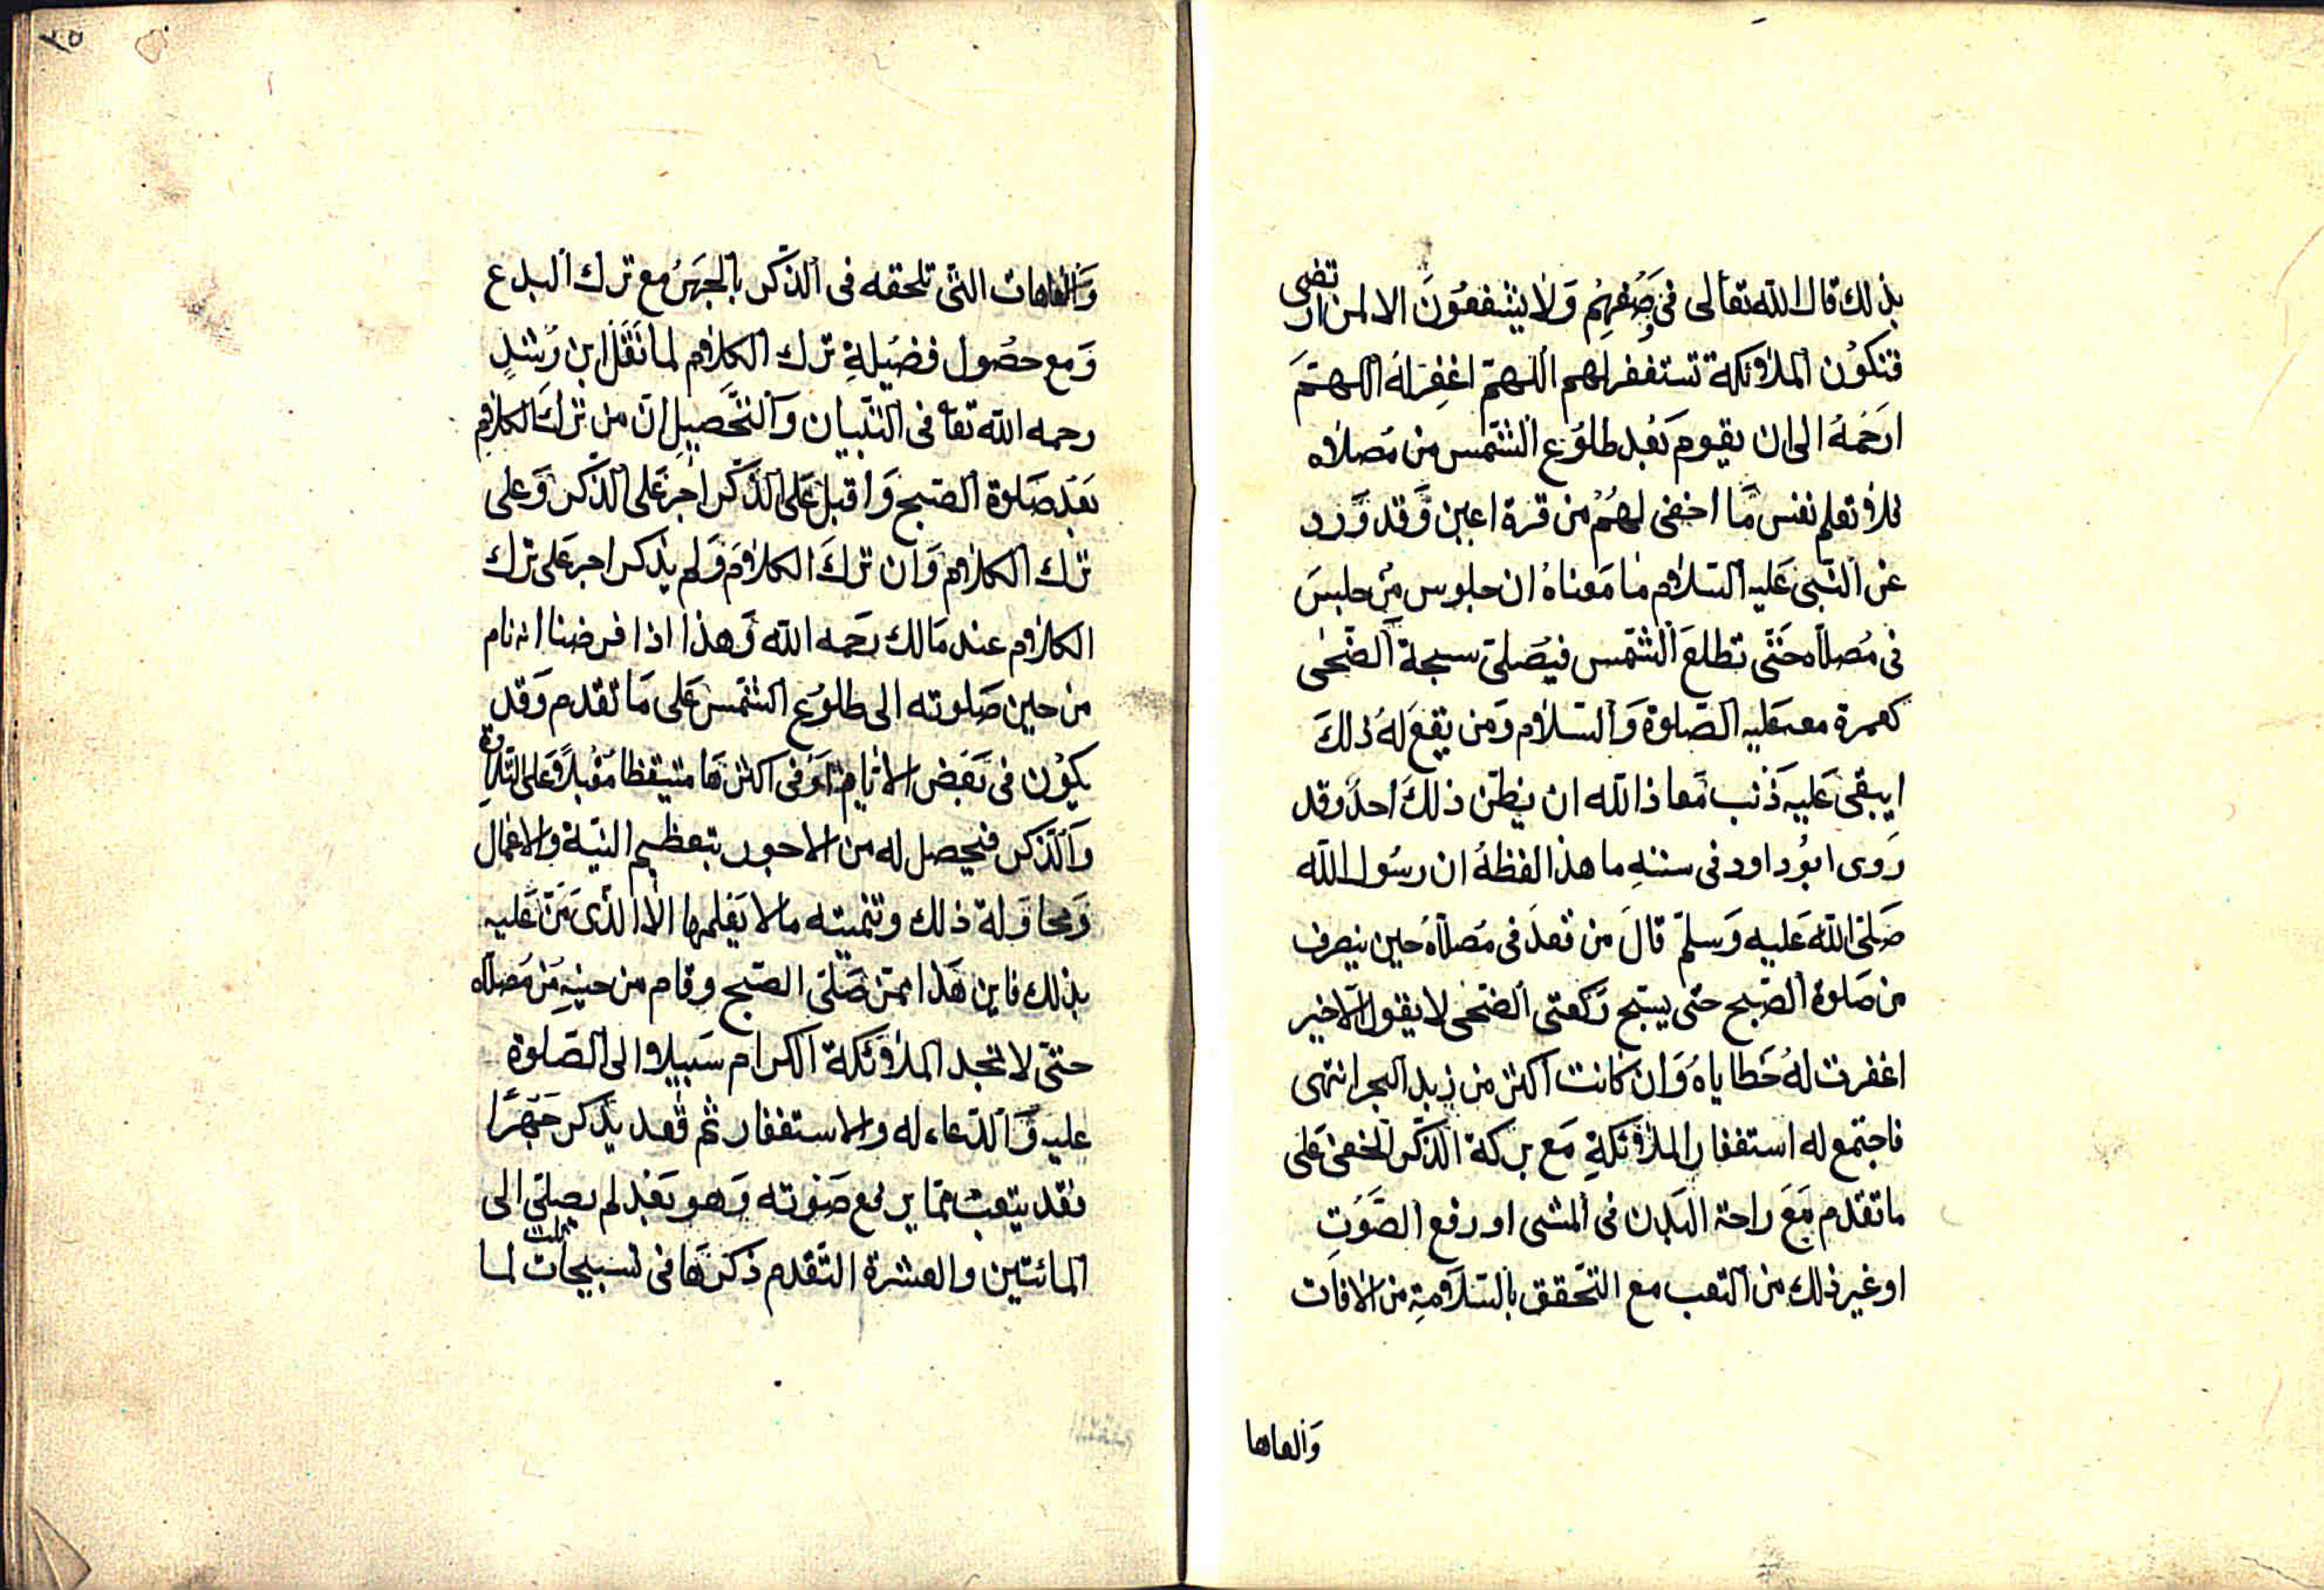 بذلك قال الله تعالى في وصفهم ولا يشفعون الا لمن ارتضى
فتكون الملائكة تستغفر لهم اللهم اغفر له اللهم
ارحمه الى ان يقوم بعد طلوع الشمس من مصلاه
فلا تعلم نفس ما اخفى لهم من قرة اعين وقد ورد
عن النبي عليه السلام ما معناه ان جلوس من جلس
في مصلاه حتى تطلع الشمس فيصلى سبحة الضحى
كعمرة معه عليه الصلوة والسلام ومن يقع له ذلك
ايبقى عليه ذنب معاذ الله ان يظن ذلك احد وقد
روى ابو داود في سننه ما هذا لفظه ان رسول الله
صلى الله عليه وسلم قال من قعد في مصلاه حين ينصرف
من صلوة الصبح حتى يسبح ركعتى الضحى لا يقول الا خير
اغفرت له خطاياه وان كانت اكثر من زبد البحر انتهى
فاجتمع له استغفار الملائكة مع بركة الذكر الخفى على
ما تقدم مع راحة البدن في المشى او رفع الصوت
او غير ذلك من التعب مع التحقق بالسلامة من الافات
والعاها
٣٥
والعاهات التى تلحقه في الذكر بالجهر مع ترك البدع
ومع حصول فضيلة ترك الكلام لما نقل ابن رشد
رحمه الله تعا في التبيان والتحصيل ان من ترك الكلام
بعد صلوة الصبح واقبل على الذكر اجر على الذكر وعلى
ترك الكلام وان ترك الكلام ولم يذكر اجر على ترك
الكلام عند مالك رحمه الله وهذا اذا فرضنا انه نام
من حين صلوته الى طلوع الشمس على ما تقدم وقد
يكون في بعض الايام او في اكثرها متيقظا مقبلا على التلاوة
والذكر فيحصل له من الاجور بتعظيم النية والاعمال
ومحاولة ذلك وتنميته ما لا يعلمها الا الذى من عليه
بذلك فاين هذا ممن صلى الصبح وقام من حينه من مصلاه
حتى لا تجد الملائكة الكرام سبيلا الى الصلوة
عليه والدعاء له والاستغفار ثم قعد يذكر جهرا
فقد يتعب مما يرفع صوته وهو بعد لم يصلى الى
المائتين والعشرة التقدم ذكرها في تسبيحات لما